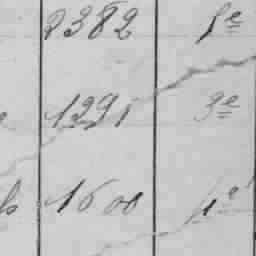 2382 1e
1291 3e
1600 4e